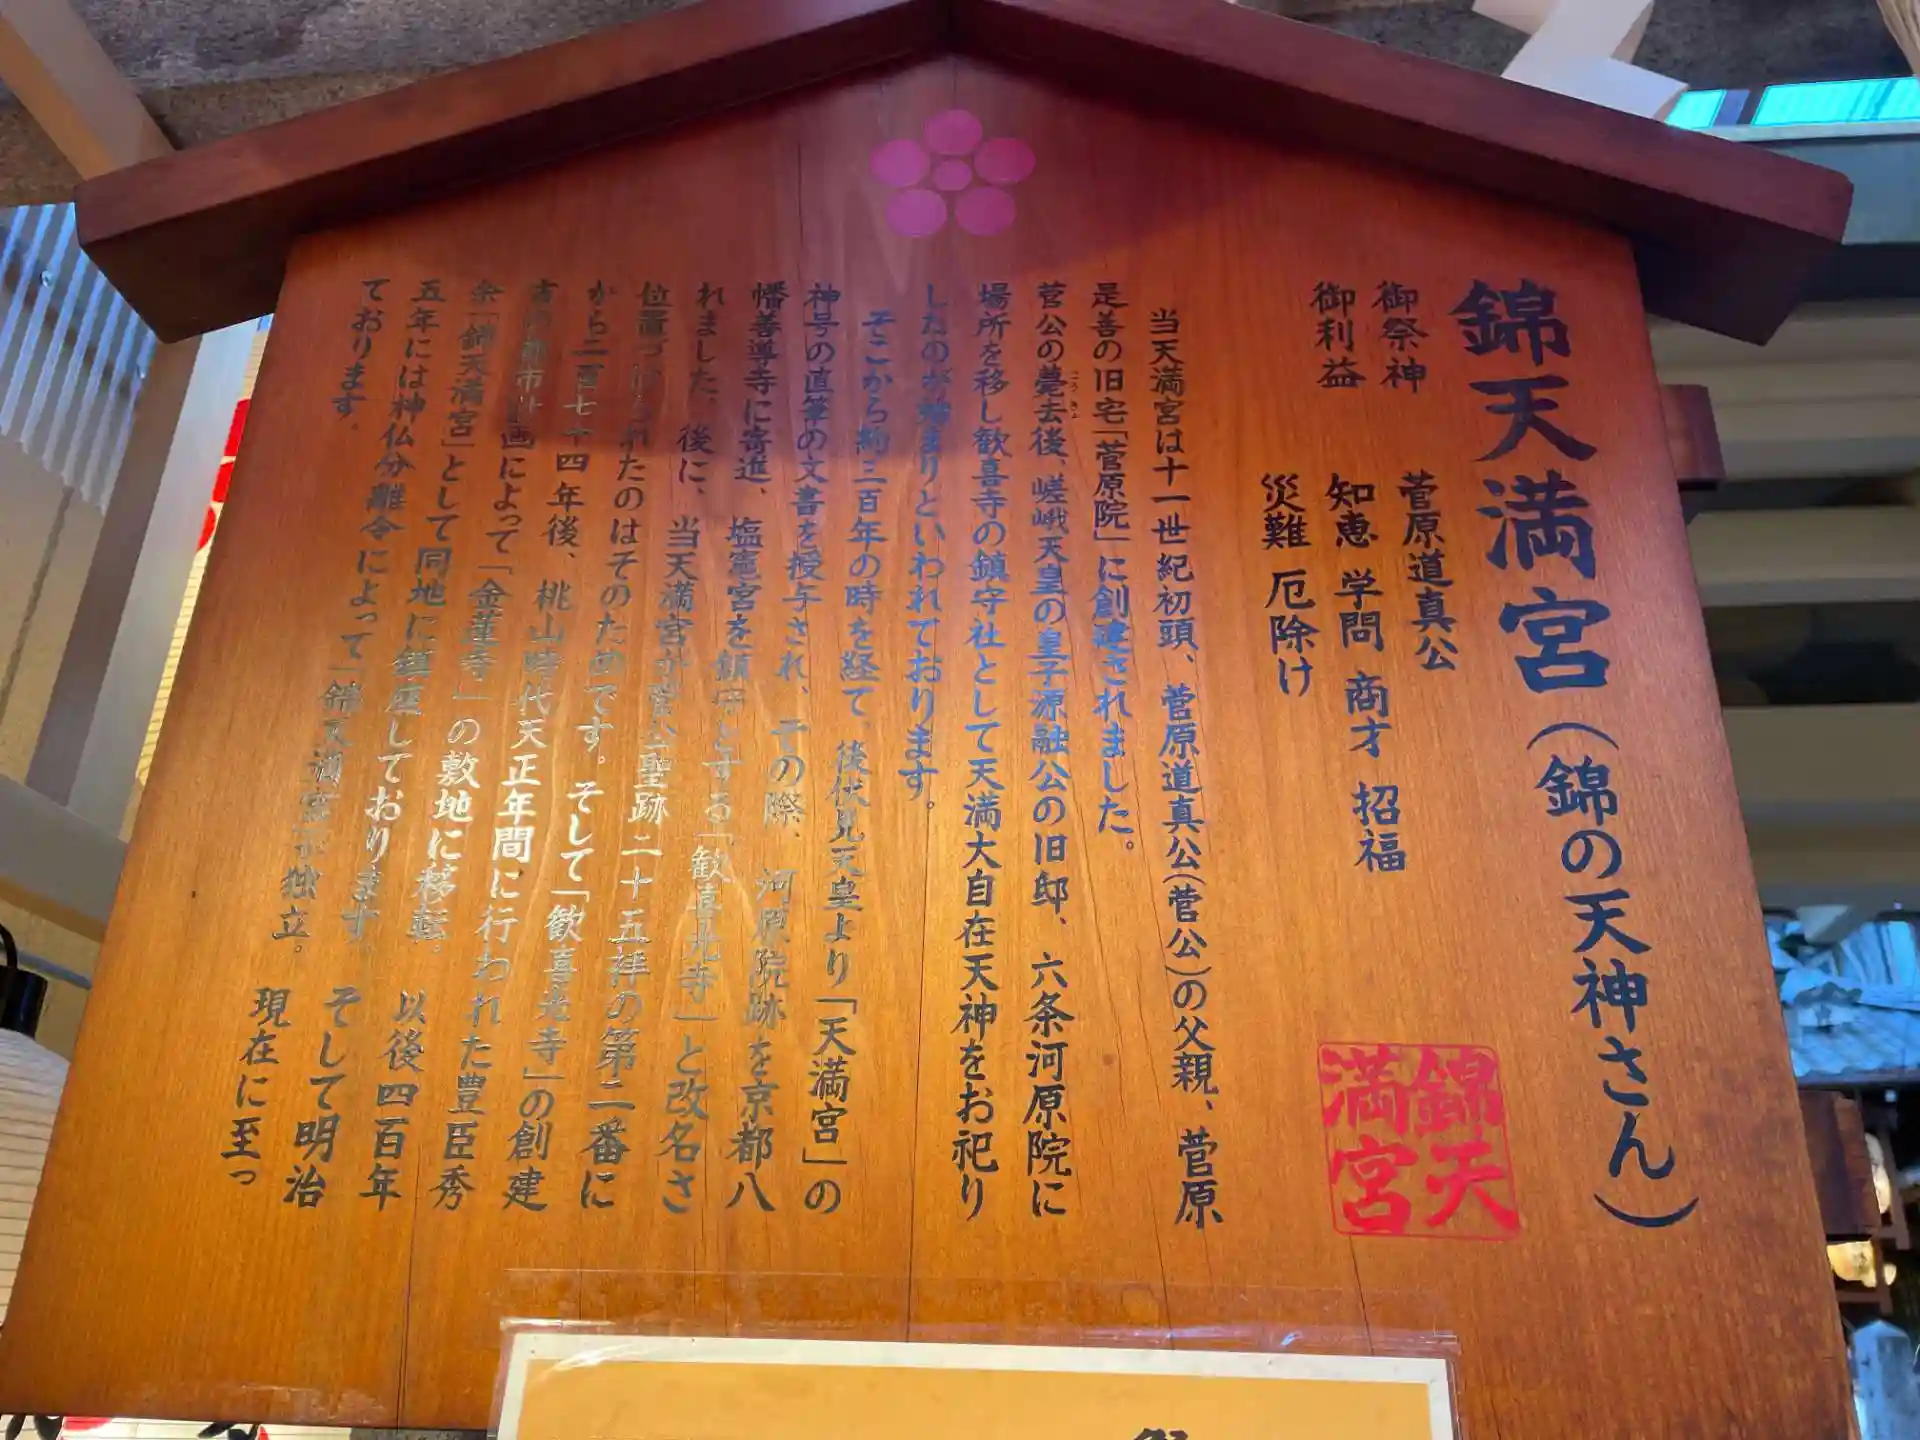 錦天満宮(錦の天神さん)
御祭神 菅原道真公
御利益 知恵 学問 商才 招福
災難 厄除け
錦天
満宮
当天満宮は十一世紀初頭、菅原道真公(菅公)の父親、菅原
是善の旧宅「菅原院」に創建されました。
菅公の薨去後、嵯峨天皇の皇子源融公の旧邸、六条河原院に
場所を移し歓喜寺の鎮守社として天満大自在天神をお祀り
したのが始まりといわれております。
そこから約三百年の時を経て、後伏見天皇より「天満宮」の
神号の直筆の文書を授与され、その際、河原院跡を京都八
幡善導寺に寄進、塩竈宮を鎮守とする「歓喜光寺」と改名さ
れました。後に、当天満宮が菅公聖跡二十五拝の第二番に
位置づけられたのはそのためです。そして「歓喜光寺」の創建
から二百七十四年後、桃山時代天正年間に行われた豊臣秀
吉の都市計画によって「金蓮寺」の敷地に移転。以後四百年
余「錦天満宮」として同地に鎮座しております。そして明治
五年には神仏分離令によって「錦天満宮」が独立。現在に至っ
ております。